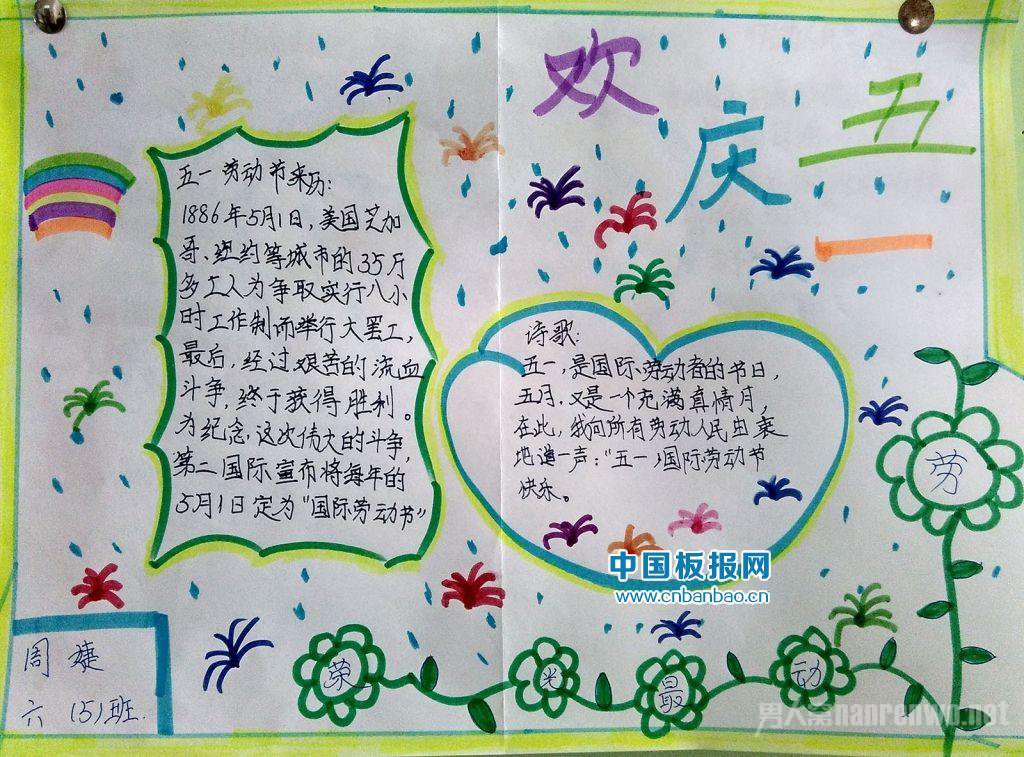 欢庆五一
五一劳动节来历:
1886年5月1日,美国芝加
哥、纽约等城市的35万
多工人为争取实行八小
时工作制而举行大罢工,
最后,经过艰苦的流血
斗争,终于获得胜利。
为纪念,这次伟大的斗争,
第二国际宣布将每年的
5月1日定为“国际劳动节”
诗歌:
五一,是国际劳动者的节日,
五月,又是一个充满真情月,
在此,我向所有劳动人民由衷
地道一声:“五一”国际劳动节
快乐。
劳
动
最
光
荣
中国板报网
www.cnbanbao.cn
周婕
六(5)班.
男人窝nanrenwo.net